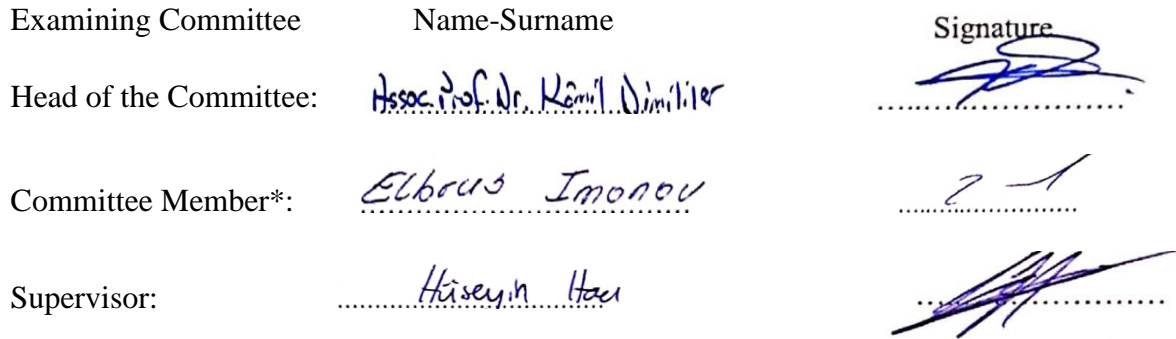 Examining Committee Name-Surname Signature
Head of the Committee: Assoc. Prof. Dr. Kâmil Dimililer
Committee Member*: Elbrus Imanov
Supervisor: Hüseyin